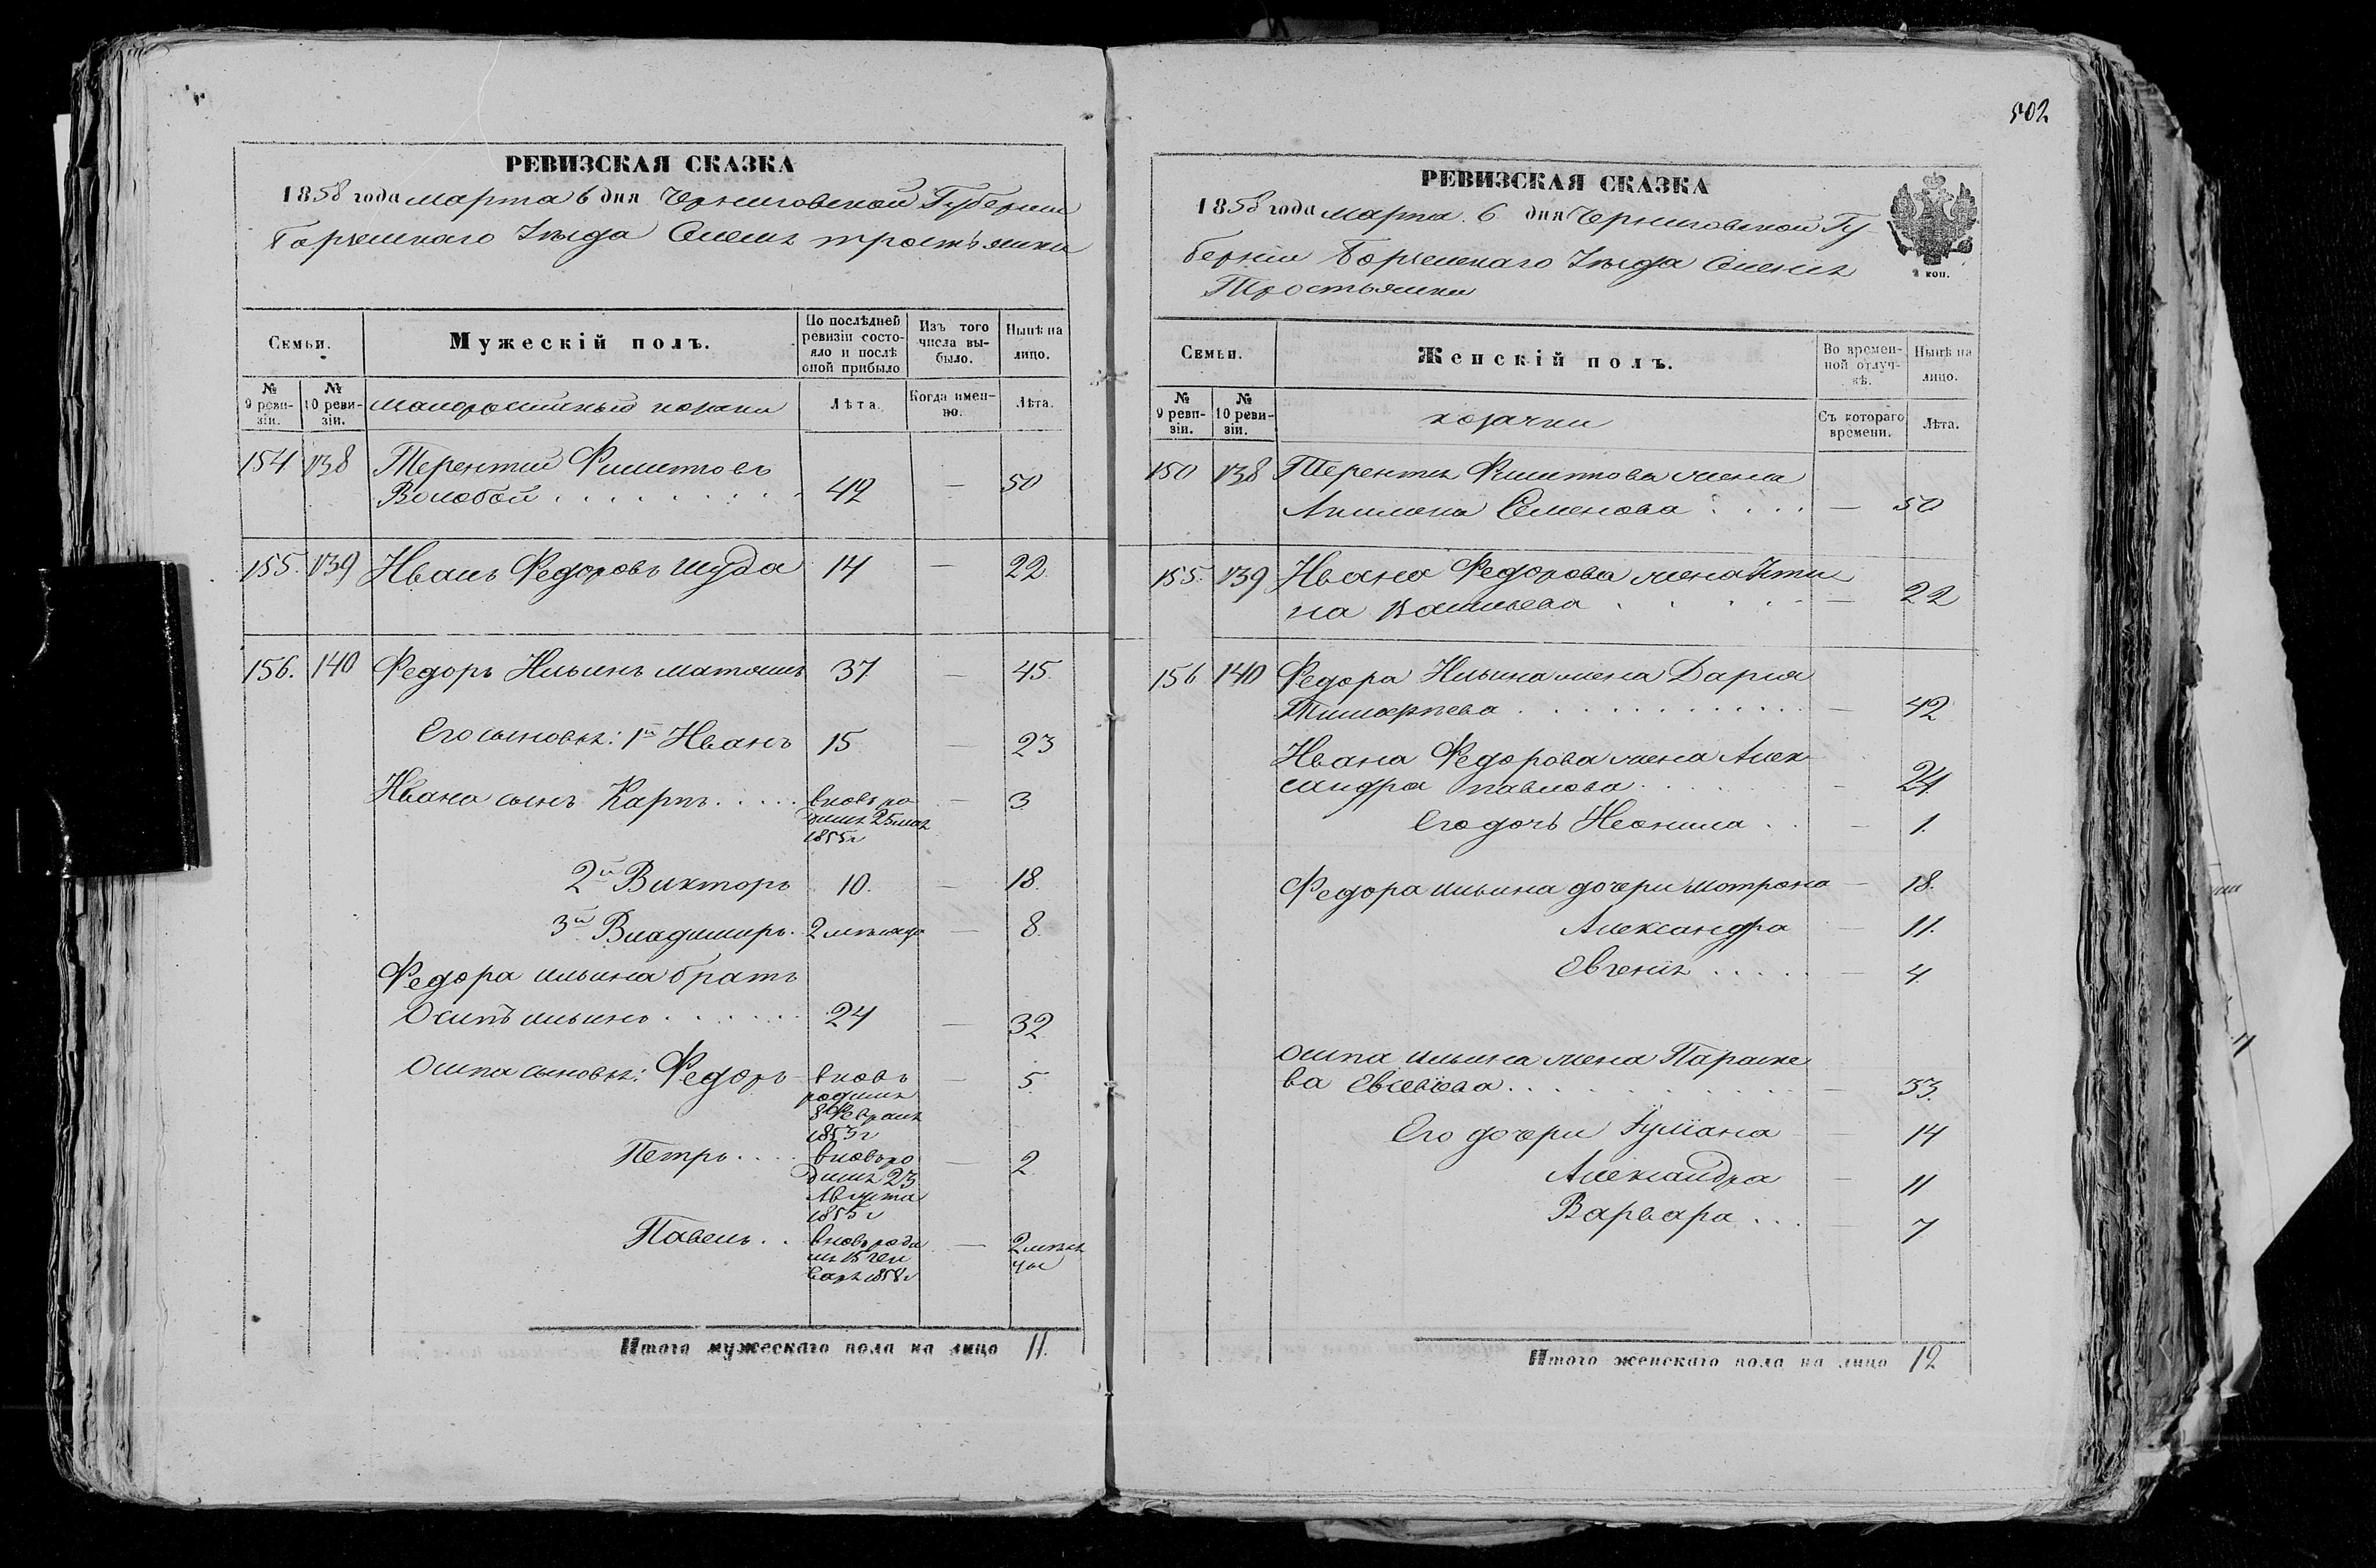 РЕВИЗСКАЯ СКАЗКА
1858 года марта 6 дня Черниговской Губернии
Борзенскаго Уезда Села Тростянки
Семьи.
Мужескій полъ.
По послѣдней ревизіи состояло и послѣ оной прибыло
Изъ того числа выбыло.
Нынѣ на лицо.
№ 9 ревизіи.
№ 10 ревизіи.
малороссійскіе козаки
Лѣта.
Когда именно.
Лѣта.
154 138 Терентий Филиповъ
Волобой 42 — 50
155. 139 Иванъ Федоровъ Шуда 14 — 22.
156. 140 Федоръ Ильинъ Матяшъ 37 — 45.
Его сыновья: 1й Иванъ 15 — 23
Ивана сынъ Карпъ вновь ро — 3
дился 25 мая
1855г
2й Викторъ 10. — 18.
3й Владимиръ 2 месяца — 8.
Федора Ильина братъ
Осипъ Ильинъ 24 — 32
Осипа сыновья: Федоръ вновь — 5.
родился
8 Февраля
1853г
Петръ вновь ро — 2
дился 23
Августа
1855г
Павелъ вновь роди — 2 меся
лся 15 Ген ца
варя 1858г
Итого мужескаго пола на лицо 11.
502
РЕВИЗСКАЯ СКАЗКА
1858 года марта 6 дня Черниговской Гу
берніи Борзенскаго Уезда Села
Тростянки
2 коп.
Семьи.
Женскій полъ.
Во временной отлучкѣ.
Нынѣ на лицо.
№ 9 ревизіи.
№ 10 ревизіи.
козачки
Съ котораго времени.
Лѣта.
150 138 Терентия Филипова жена
Акилина Семенова — 50
155. 139 Ивана Федорова жена Усти
на Васильева — 22
156 140 Федора Ильина жена Дария
Тимофеева — 42
Ивана Федорова жена Алек
сандра Павлова — 24.
Его дочь Неонила — 1.
Федора Ильина дочери Мотрона — 18.
Александра — 11.
Евгения — 4
Осипа Ильина жена Параске
ва Евсевіева — 33.
Его дочери Іуліана — 14
Александра — 11
Варвара — 7
Итого женскаго пола на лицо 12